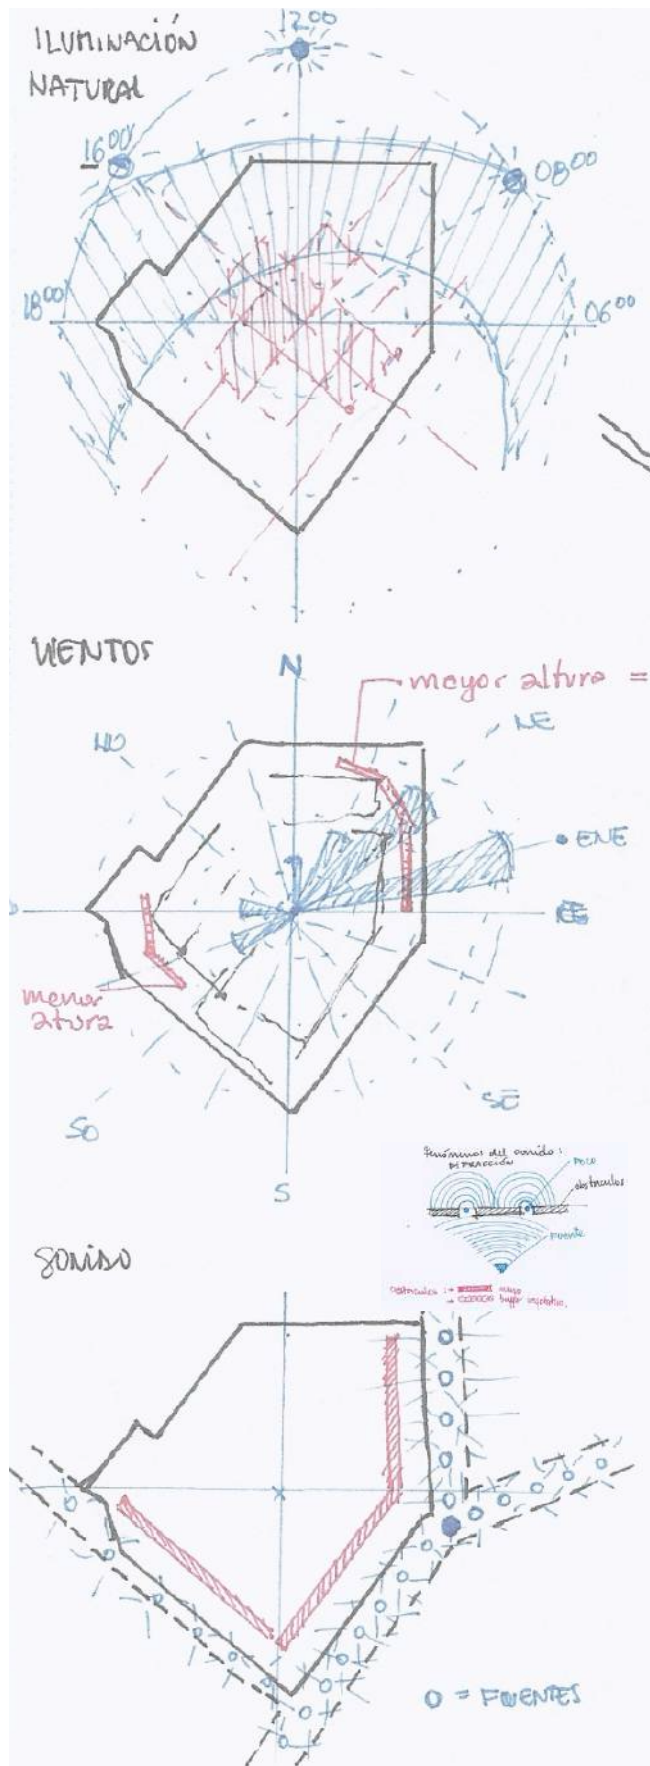 ILUMINACIÓN
NATURAL
12⁰⁰
16⁰⁰
08⁰⁰
18⁰⁰
06⁰⁰
VIENTOS
N
mayor altura =
NE
NO
ENE
E
menor
altura
SO
SE
S
Fenómenos del sonido:
DIFRACCIÓN
FOCO
obstáculos
FUENTE
obstáculos: → muro
→ vegetativo.
SONIDO
O = FUENTES